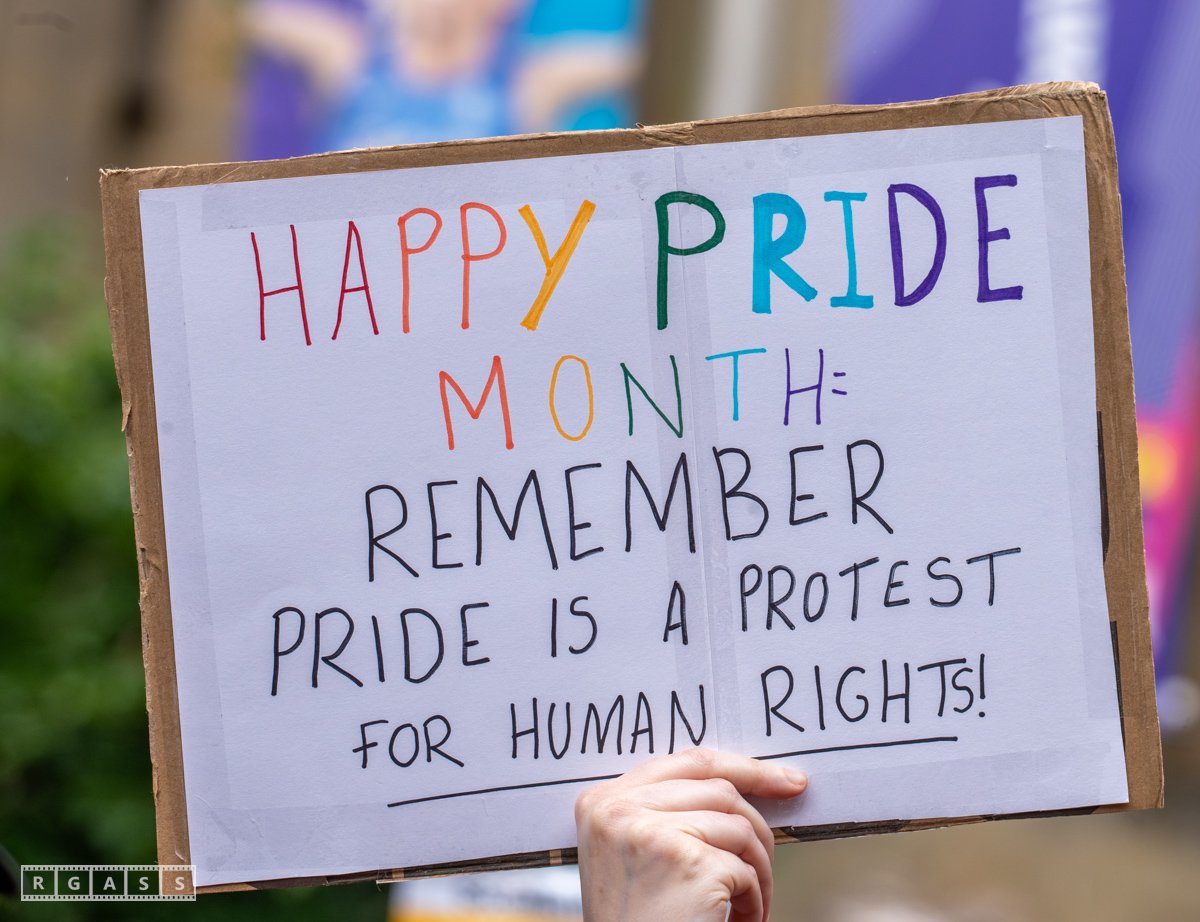 HAPPY PRIDE
MONTH:
REMEMBER
PRIDE IS A PROTEST
FOR HUMAN RIGHTS!
RGASS